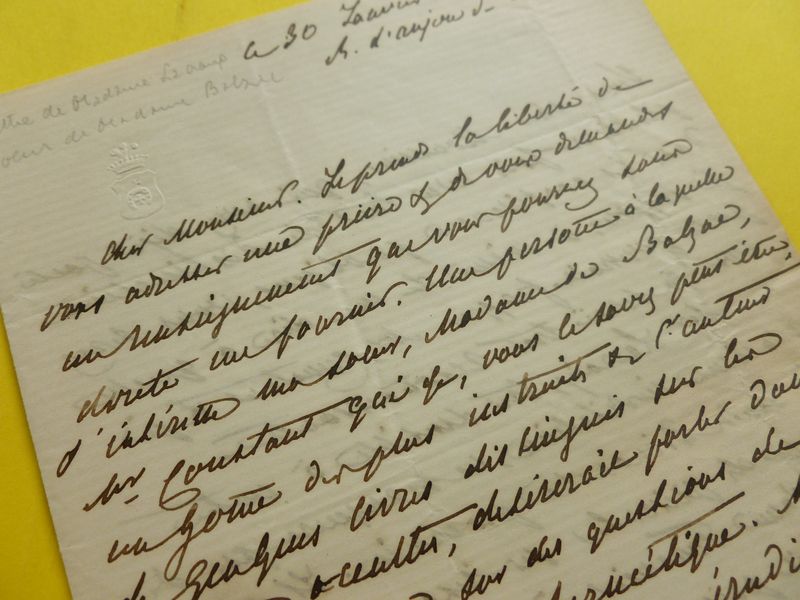 le 30 Janvier
R. d'anjou
lettre de Madame Lacroix
soeur de Madame Balzac
Cher Monsieur. Je prends la liberté de
vous adresser une prière & de vous demander
un renseignement que vous pourrez sans
doute me fournir. Une personne à laquelle
s'intéresse ma soeur, Madame de Balzac,
Mr Constant qui est, vous le savez peut être,
un homme des plus instruits & l'auteur
de quelques livres distingués sur les
occultes, désirerait parler dans
sur des questions de
hermétique. M
érudi